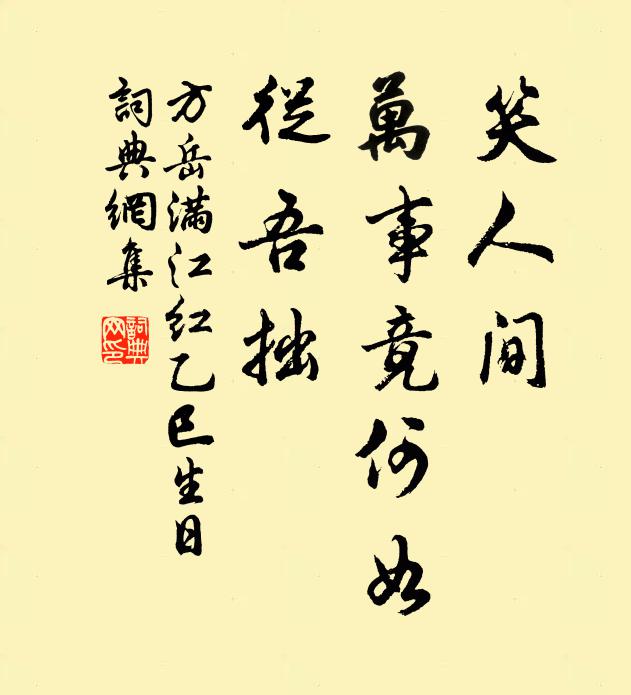 笑人間
萬事竟何如
從吾拙
方岳滿江紅乙巳生日
詞典網集
詞典网印